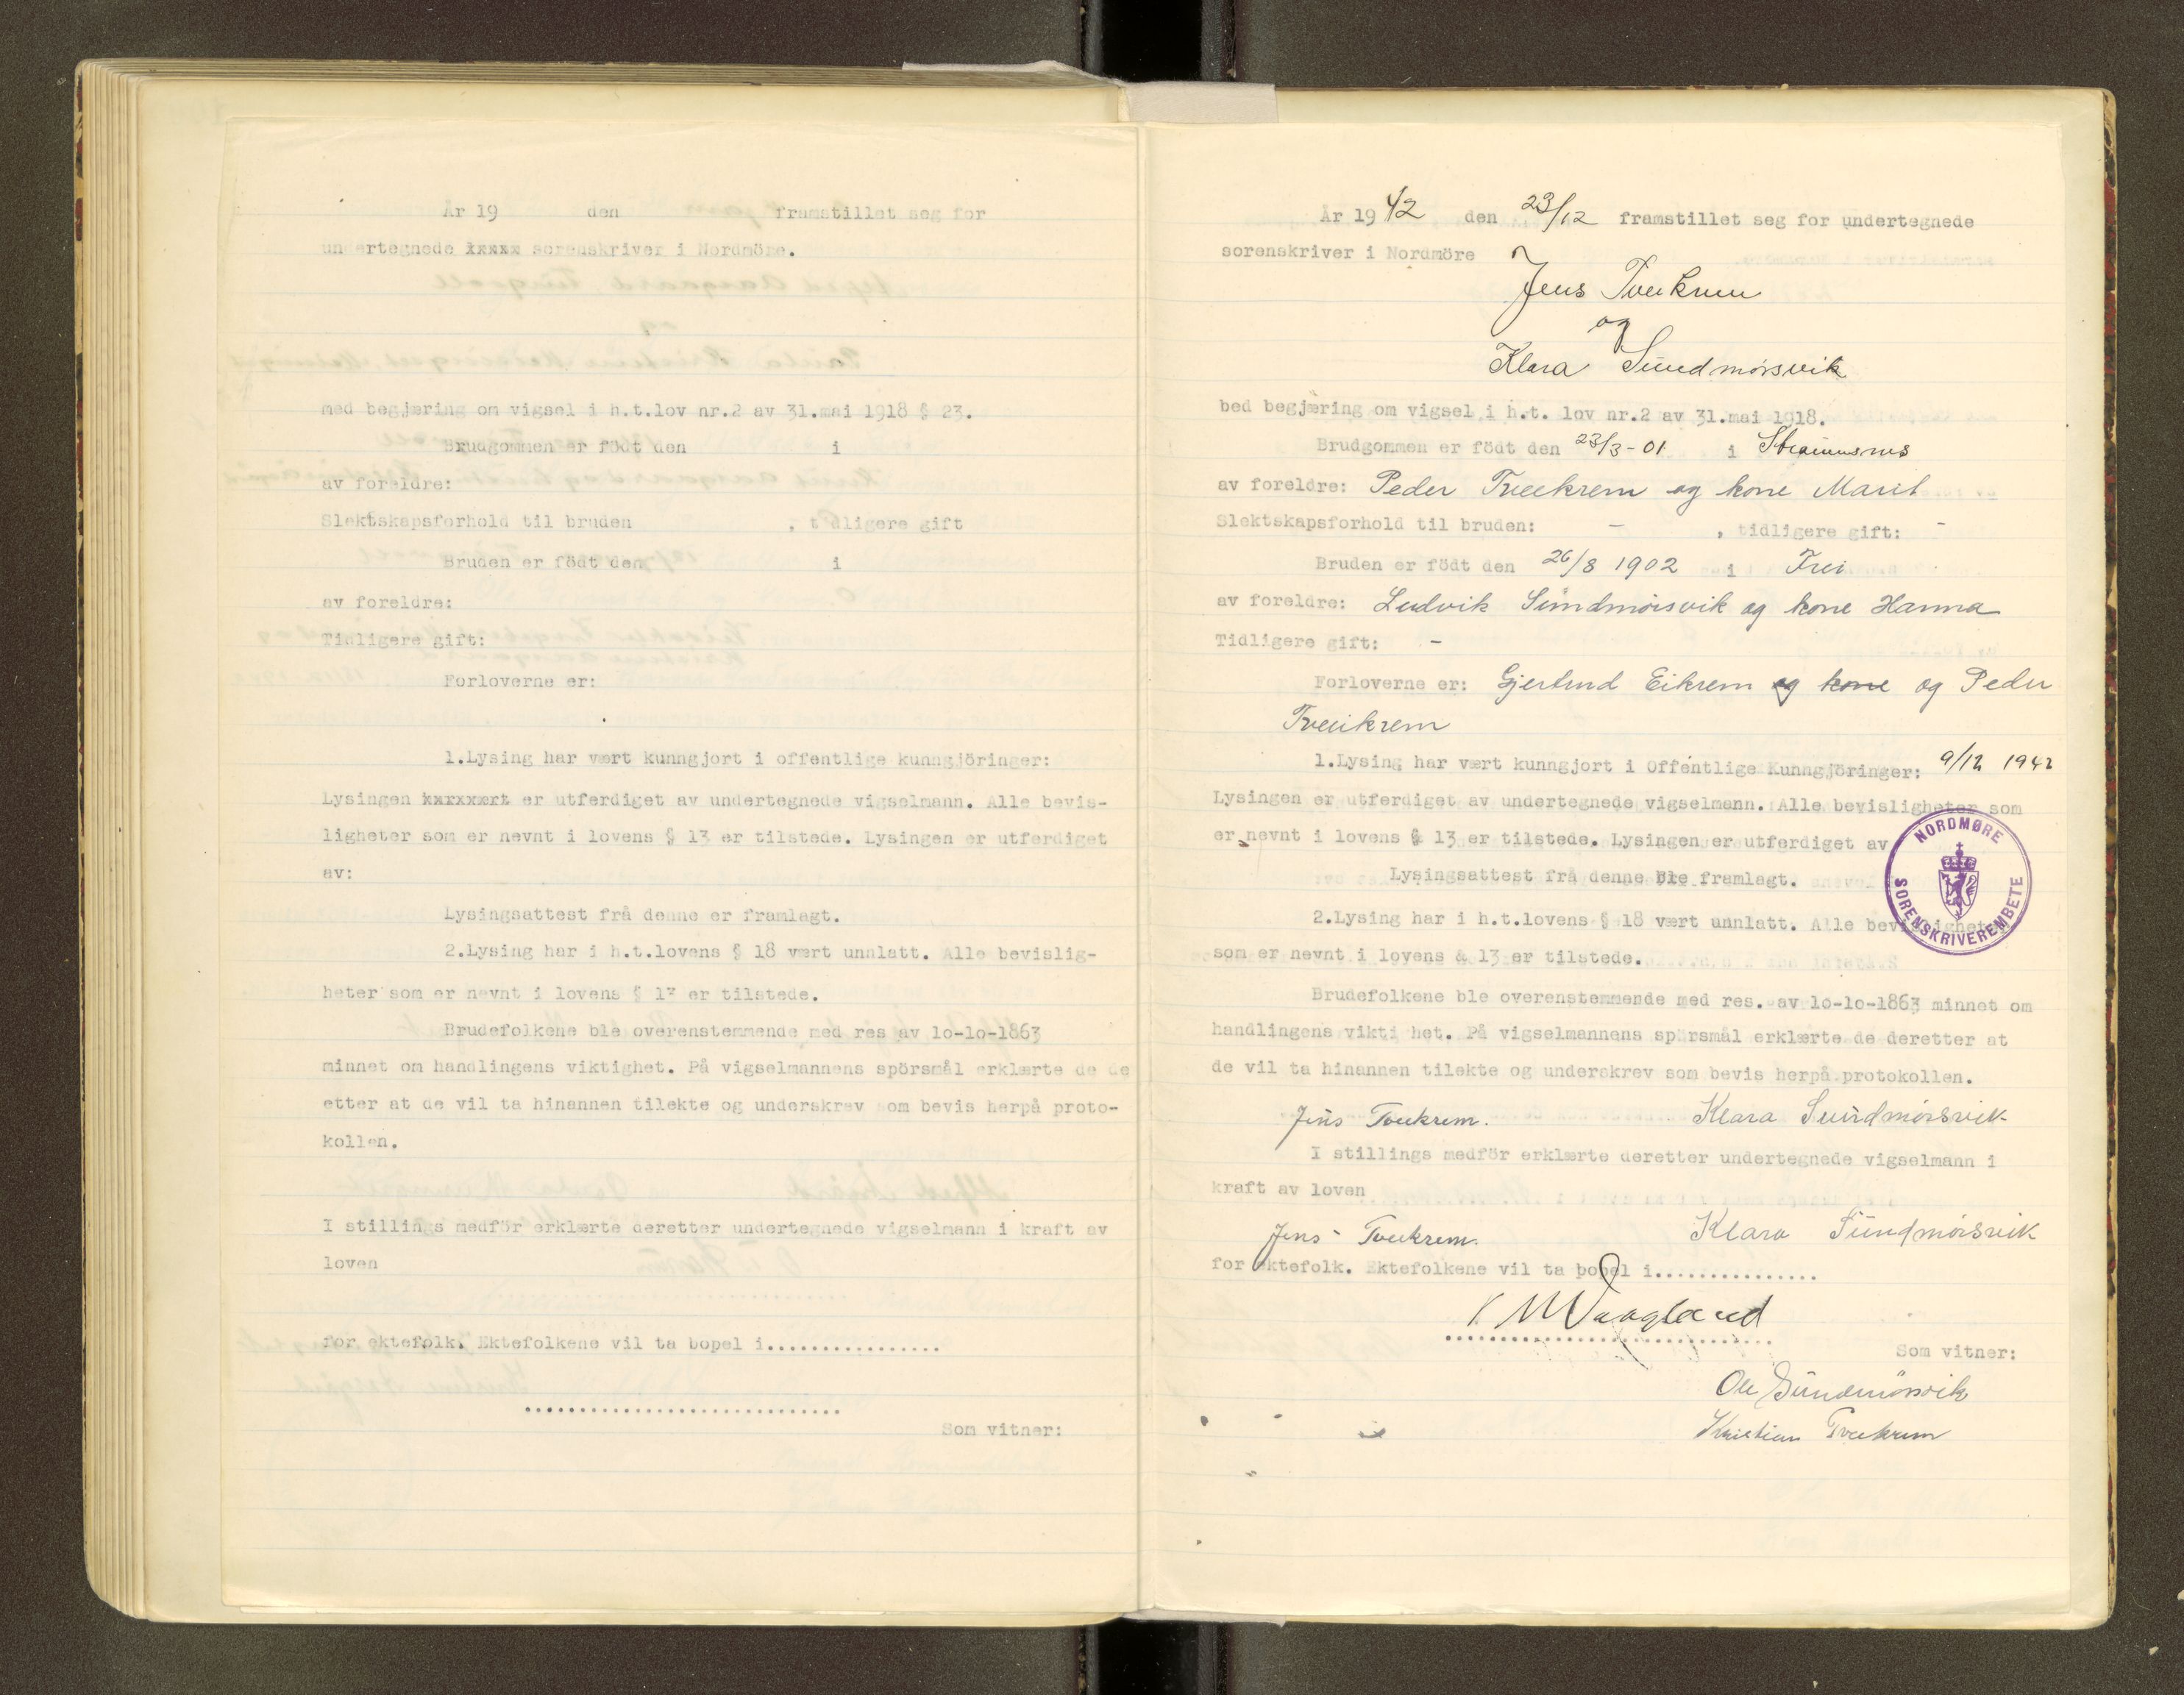 År 19 den framstillet seg for
undertegnede xxxxx sorenskriver i Nordmöre.
med begjæring om vigsel i h.t.lov nr.2 av 31.mai 1918 § 23.
Brudgommen er födt den i
av foreldre:
Slektskapsforhold til bruden , tidligere gift
Bruden er födt den i
av foreldre:
Tidligere gift:
Forloverne er:
1.Lysing har vært kunngjort i offentlige kunngjöringer:
Lysingen er utferdiget av undertegnede vigselmann. Alle bevis-
ligheter som er nevnt i lovens § 13 er tilstede. Lysingen er utferdiget
av:
Lysingsattest frå denne er framlagt.
2.Lysing har i h.t.lovens § 18 vært unnlatt. Alle bevislig-
heter som er nevnt i lovens § 13 er tilstede.
Brudefolkene ble overenstemmende med res av 10-10-1863
minnet om handlingens viktighet. På vigselmannens spörsmål erklærte de de
etter at de vil ta hinannen tilekte og underskrev som bevis herpå proto-
kollen.
I stillings medför erklærte deretter undertegnede vigselmann i kraft av
loven
for ektefolk. Ektefolkene vil ta bopel i................
.............................
Som vitner:
År 1942 den 23/12 framstillet seg for undertegnede
sorenskriver i Nordmöre
Jens Tveekrem
og
Klara Sundmörsvik
bed begjæring om vigsel i h.t. lov nr.2 av 31.mai 1918.
Brudgommen er födt den 23/3-01 i
av foreldre: Peder Tveekrem og kone Marit
Slektskapsforhold til bruden: - , tidligere gift: -
Bruden er födt den 26/8 1902 i Frei
av foreldre: Ludvik Sundmörsvik og kone Hanna
Tidligere gift: -
Forloverne er: Gjertrud Eikrem og kone og Peder
Tveeikrem
1.Lysing har vært kunngjort i Offentlige Kunngjöringer: 9/12 1942
Lysingen er utferdiget av undertegnede vigselmann. Alle bevisligheter som
er nevnt i lovens § 13 er tilstede. Lysingen er utferdiget av
Lysingsattest frå denne ble framlagt.
2.Lysing har i h.t.lovens § 18 vært unnlatt. Alle bevisligheter
som er nevnt i lovens & 13 er tilstede.
NORDMØRE SORENSKRIVEREMBETE
Brudefolkene ble overenstemmende med res. av 10-10-1863 minnet om
handlingens vikti het. På vigselmannens spörsmål erklærte de deretter at
de vil ta hinannen tilekte og underskrev som bevis herpå protokollen.
Jens Tveekrem. Klara Sundmörsvik
I stillings medför erklærte deretter undertegnede vigselmann i
kraft av loven
Jens Tveekrem. Klara Sundmörsvik
for ektefolk. Ektefolkene vil ta bopel i...............
Waagland
Som vitner:
Ole Sundmörsvik
Kristian Tveekrem